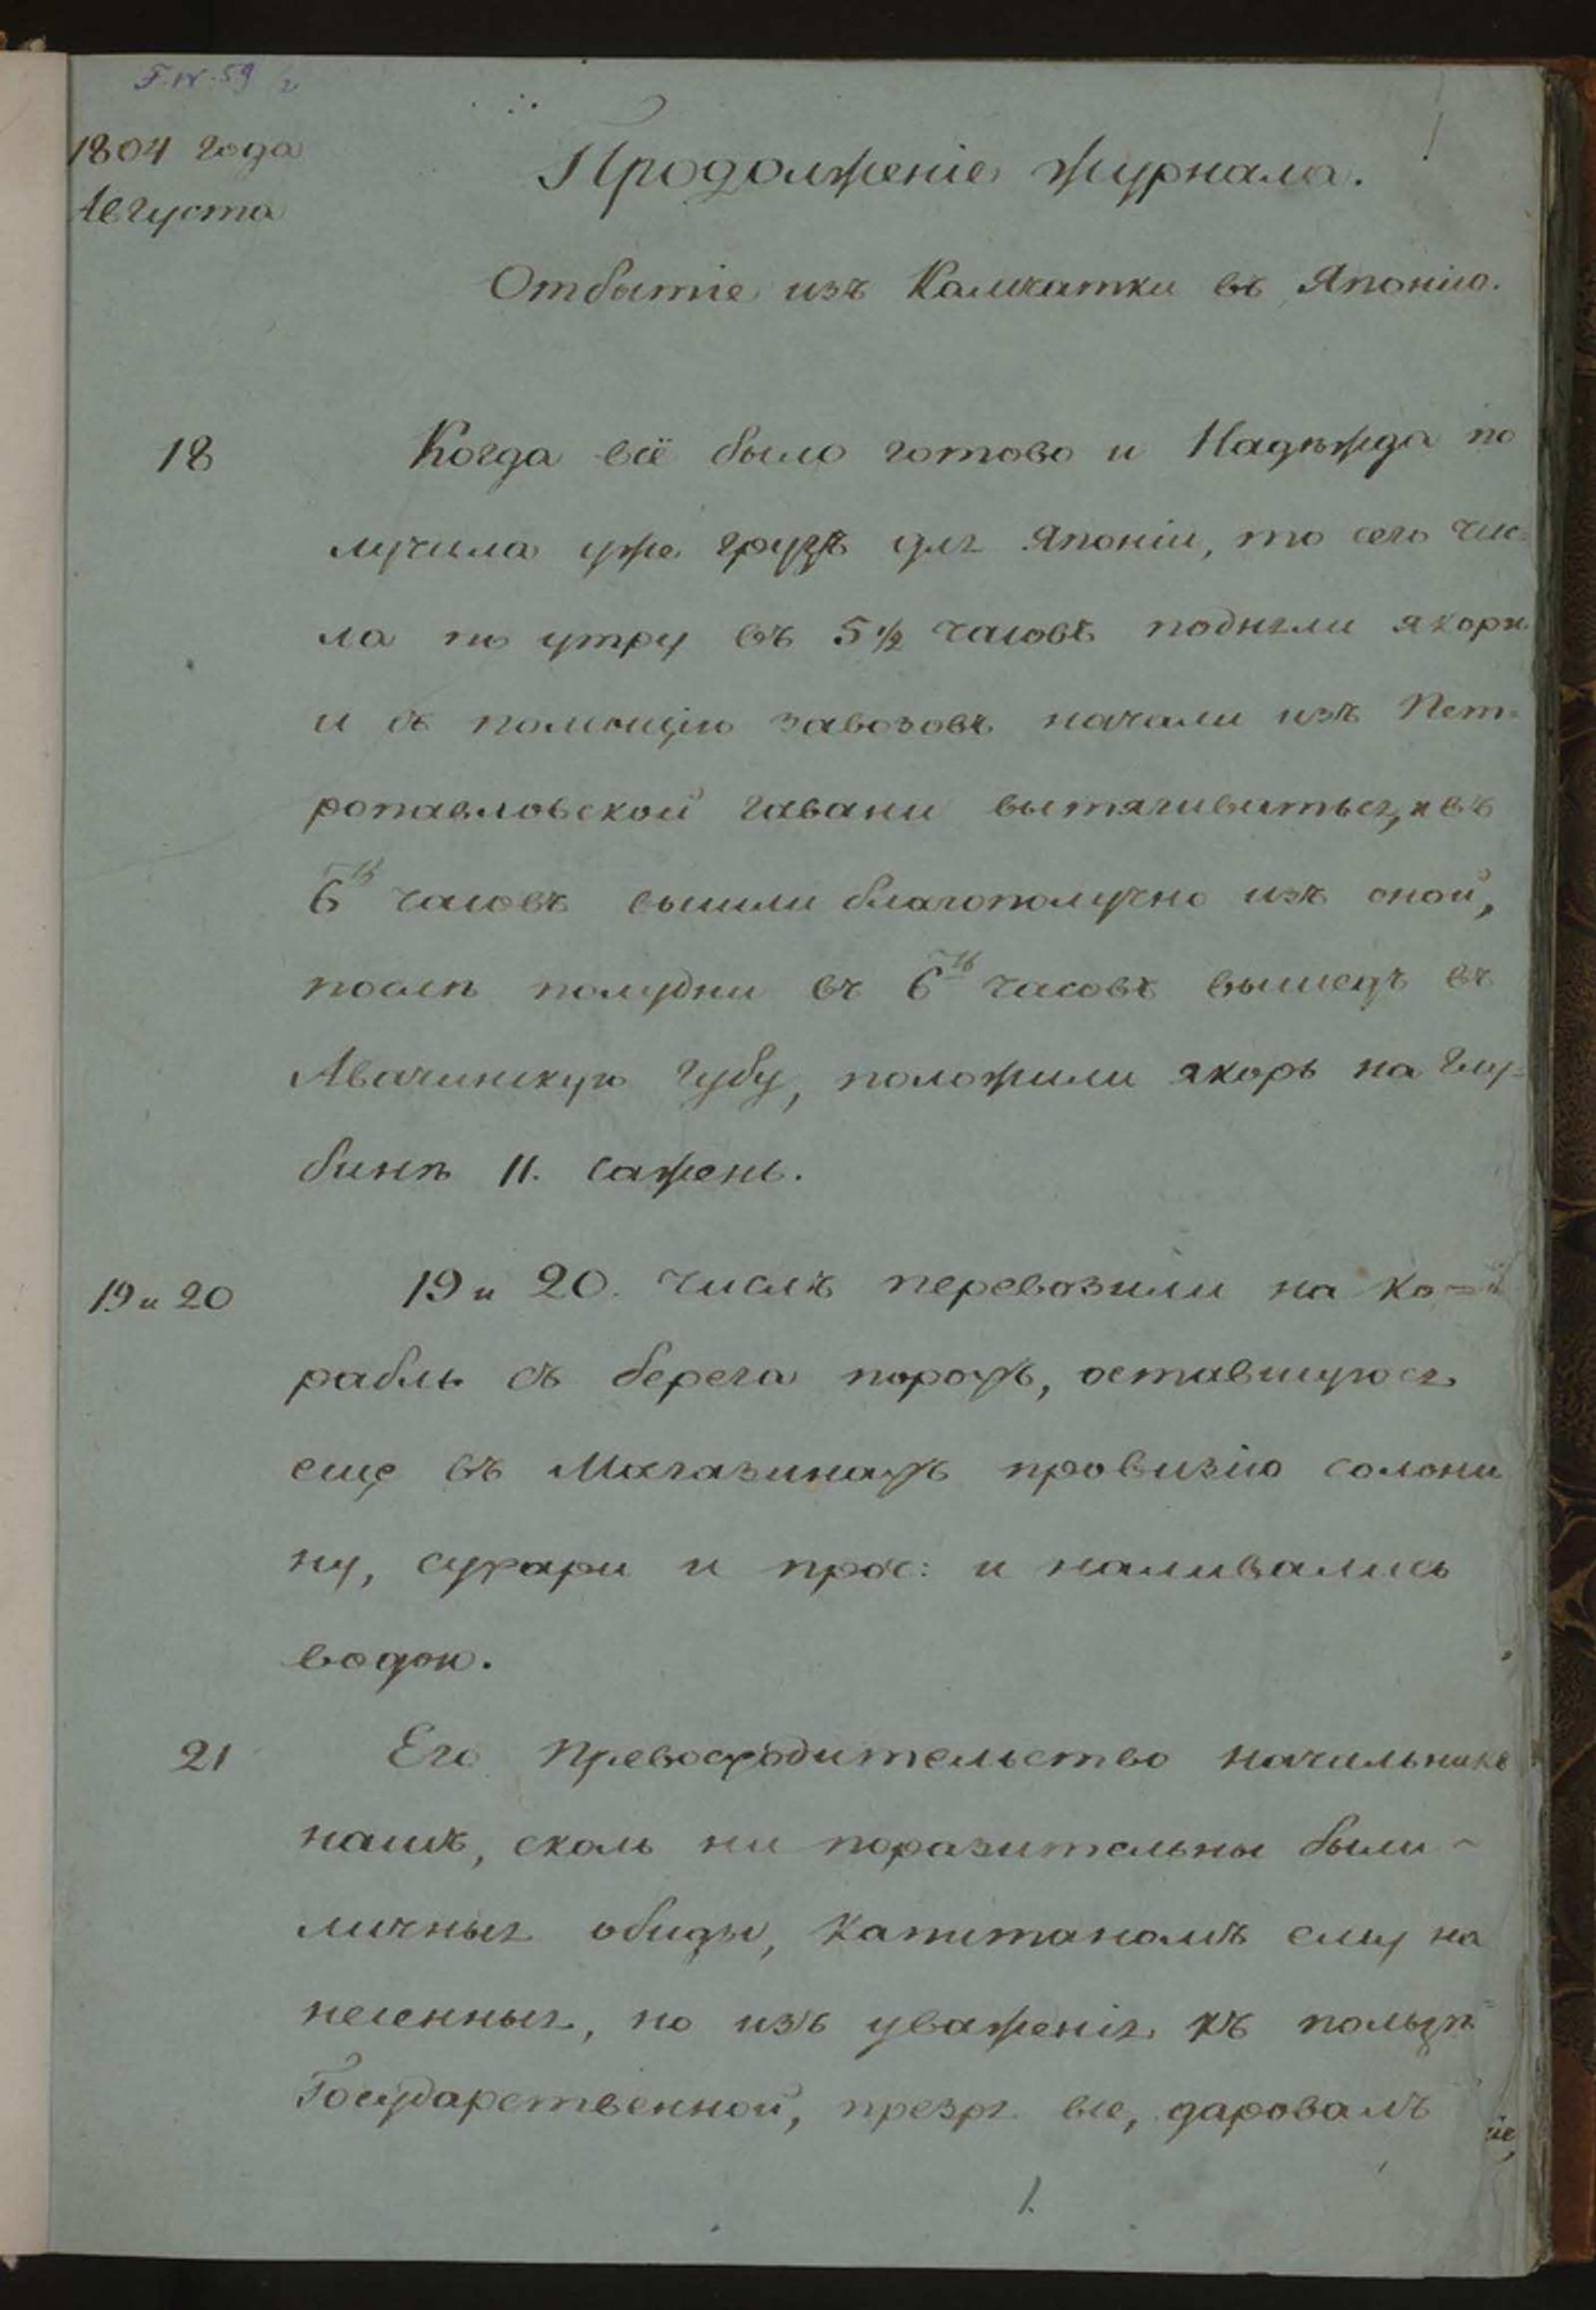 F.IV.59/2
1804 года
Августа
Продолженіе журнала.
Отбытіе изъ Камчатки въ Японію.
18
Когда всё было готово и Надѣжда по
лучила уже грузъ для Японіи, то сего чис-
ла по утру въ 5 1/2 часовъ подняли якори
и съ помощію завозовъ начали изъ Пет-
ропавловской гавани вытягиваться, и въ
6ть часовъ вышли благополучно изъ оной,
послѣ полудни въ 6ть часовъ вышедъ въ
Авачинскую губу, положили якорь на глу-
бинѣ 11. сажень.
19 и 20
19 и 20. числъ перевозили на ко-
рабль съ берега порохъ, оставшуюся
еще въ Магазинахъ провизію солони
ну, сухари и проч: и наливались
водою.
21
Его Превосходительство начальникъ
нашъ, сколь ни поразительны были
личныя обиды, Капитаномъ ему на
несенныя, но изъ уваженія къ пользѣ
Государственной, презря все, даровалъ
1.